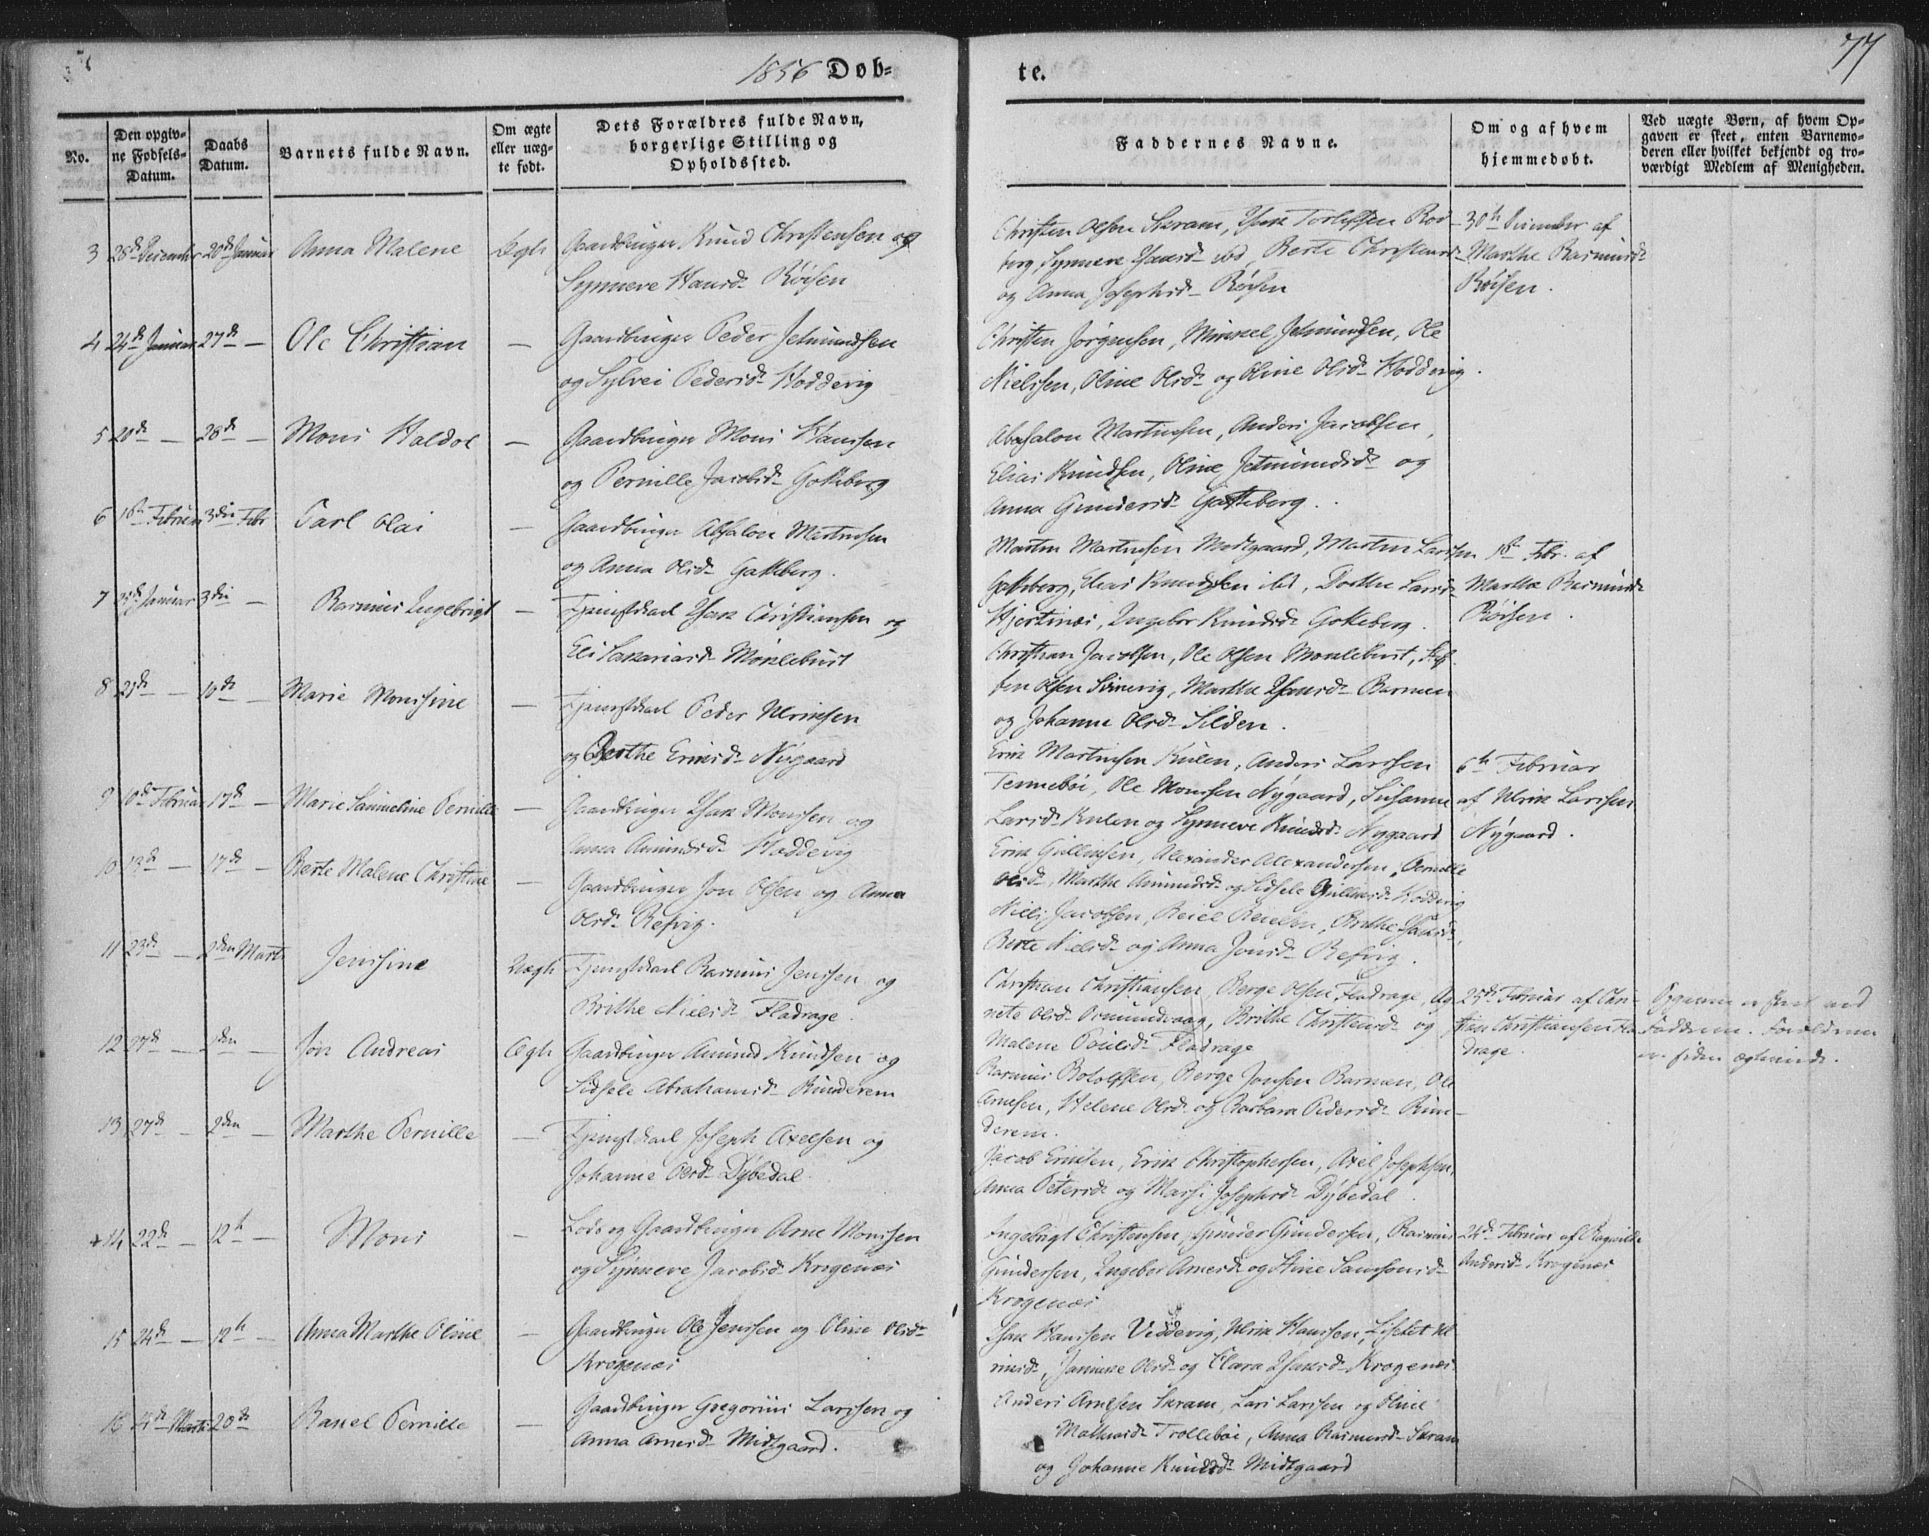 1856 Døb-
te.
77
No.
Den opgiv-
ne Fødsels-
Datum.
Daabs
Datum.
Barnets fulde Navn.
Om ægte
eller uæg-
te født.
Dets Forældres fulde Navn,
borgerlige Stilling og
Opholdssted.
Faddernes Navne.
Om og af hvem
hjemmedøbt.
Ved uægte Børn, af hvem Op-
gaven er skeet, enten Barnemo-
deren eller hvilket bekjendt og tro-
værdigt Medlem af Menigheden.
3 28de December 20de Januar Anna Malene Ægte Gaardbruger Knud Christensen og
Synneve Hansd. Röisen
Christen Olsen Skram, Isak Rov-
berg, Synneve ibd, Berte Christensd.
og Anna Josephsd. Röisen
30te December af
Marthe Rasmusd.
Röisen.
4 24de Januar 27de — Ole Christian — Gaardbruger Peder Jetmundsen
og Sylvei Pedersd. Hoddevig
Christen Jörgensen, Mikkel Jetmundsen, Ole
Nielssen, Oline Olsd. og Oline Olsd. Hoddevig.
5 20de — 28de — Mons Haldor — Gaardbruger Mons Hanssen
og Pernille Jacobsd. Gotteberg
Abssalon Martinssen, Anders Jacobsen,
Elias Knudsen, Oline Jetmundsd. og
Anna Gundersd. Gotteberg.
6 1ste Februar 3die Febr Carl Olai — Gaardbruger Absalon Martinssen
og Anna Olsd. Gotteberg.
Morten Martinssen Midtgaard, Morten Larssen
Gotteberg, Elias Knudssen ibd, Dorthe Larsd.
Hjertenæs, Ingebor Knudsd. Gotteberg.
1ste Febr. af
Marthe Rasmusd.
Röisen.
7 Januar 3die — Rasmus Ingebrigt — Tjenestkarl Isak Christiansen og
Eli Sakariasd. Monlebust
Christian Jacobsen, Ole Olsen Monlebust, Stef-
fen Olsen Sörevig, Marthe Isaksd. Barmen
og Johanne Olsd. Silden.
8 21de — 10de — Marie Monssine — Tjenestkarl Peder Ulriksen
og Berthe Eriksd. Nygaard
Erik Martinssen Kulen, Anders Larssen
Tennebøe, Ole Monssen Nygaard, Susanne
Larsd. Kulen og Synneve Knudsd. Nygaard
6te Februar
af Ulrik Larssen
Nygaard.
9 Februar 17de — Marie Samueline Pernille — Gaardbruger Isak Monssen og
Anna Amundsd. Hoddevig
Erik Gullaksen, Alexander Alexandersen, Pernille
Olsd., Marthe Amundsd. og Sidsele Gullaksd. Hoddevig
10 13de — 17de — Berte Malene Christine — Gaardbruger Jon Olsen og Anna
Olsd. Refvig.
Niels Jacobsen, Brithe Isaksd.,
Berte Nielsd. og Anna Jonsd. Refvig.
11 23de — 2den Marts Jenssine Uægte Tjenestkarl Rasmus Jenssen og
Brithe Nielsd. Fladrage.
Christian Christiansen, Berge Olsen Fladrage, Ag-
nete Olsd. Osmundvaag, Brithe Christensd. og
Malene Poulsd. Fladrage
25de Februar af Chri-
stian Christiansen Fla-
drage.
Opgaven er skeet ved
Fadderne. Forældrene
ere siden ægteviede.
12 27de — 2den — Jon Andreas Ægte Gaardbruger Amund Knudsen og
Sidsele Abrahamsd. Runderem
Rasmus Rolofssen, Berge Jonsen Barmen, Ole
Arnesen, Helene Olsd. og Barbara Pedersd. Run-
derem.
13 27de — 2den — Marthe Pernille — Tjenestkarl Joseph Axelsen og
Johanne Olsd. Dybedal.
Jacob Eriksen, Erik Christophersen, Axel Josephsen,
Anna Petersd. og Marsi Josephsd. Dybedal.
14 22de — 12te — Mons — Lods og Gaardbruger Arne Monssen
og Synneve Jacobsd. Krogenæs
Ingebrigt Christensen, Gunder Gundersen, Rasmus
Gundersen, Ingebor Arnesd. og Stine Samsonsd.
Krogenæs
24de Februar af Ragnilde
Andersd. Krogenæs
15 24de — 12te — Anna Marthe Oline — Gaardbruger Ole Jenssen og Oline Olsd.
Krogenæs
Isak Hanssen Vedvig, Ulrik Hanssen, Lisebet Ul-
riksd., Jannike Olsd. og Clara Isaksd. Krogenæs.
16 4de Marts 20de Rakel Pernille — Gaardbruger Gregorius Larssen og
Anna Arnesd. Midtgaard.
Anders Arnesen Skram, Lars Larssen og Oline
Mathiasd. Trolleböe, Anna Rasmusd. Skram
og Johanne Knudsd. Midtgaard